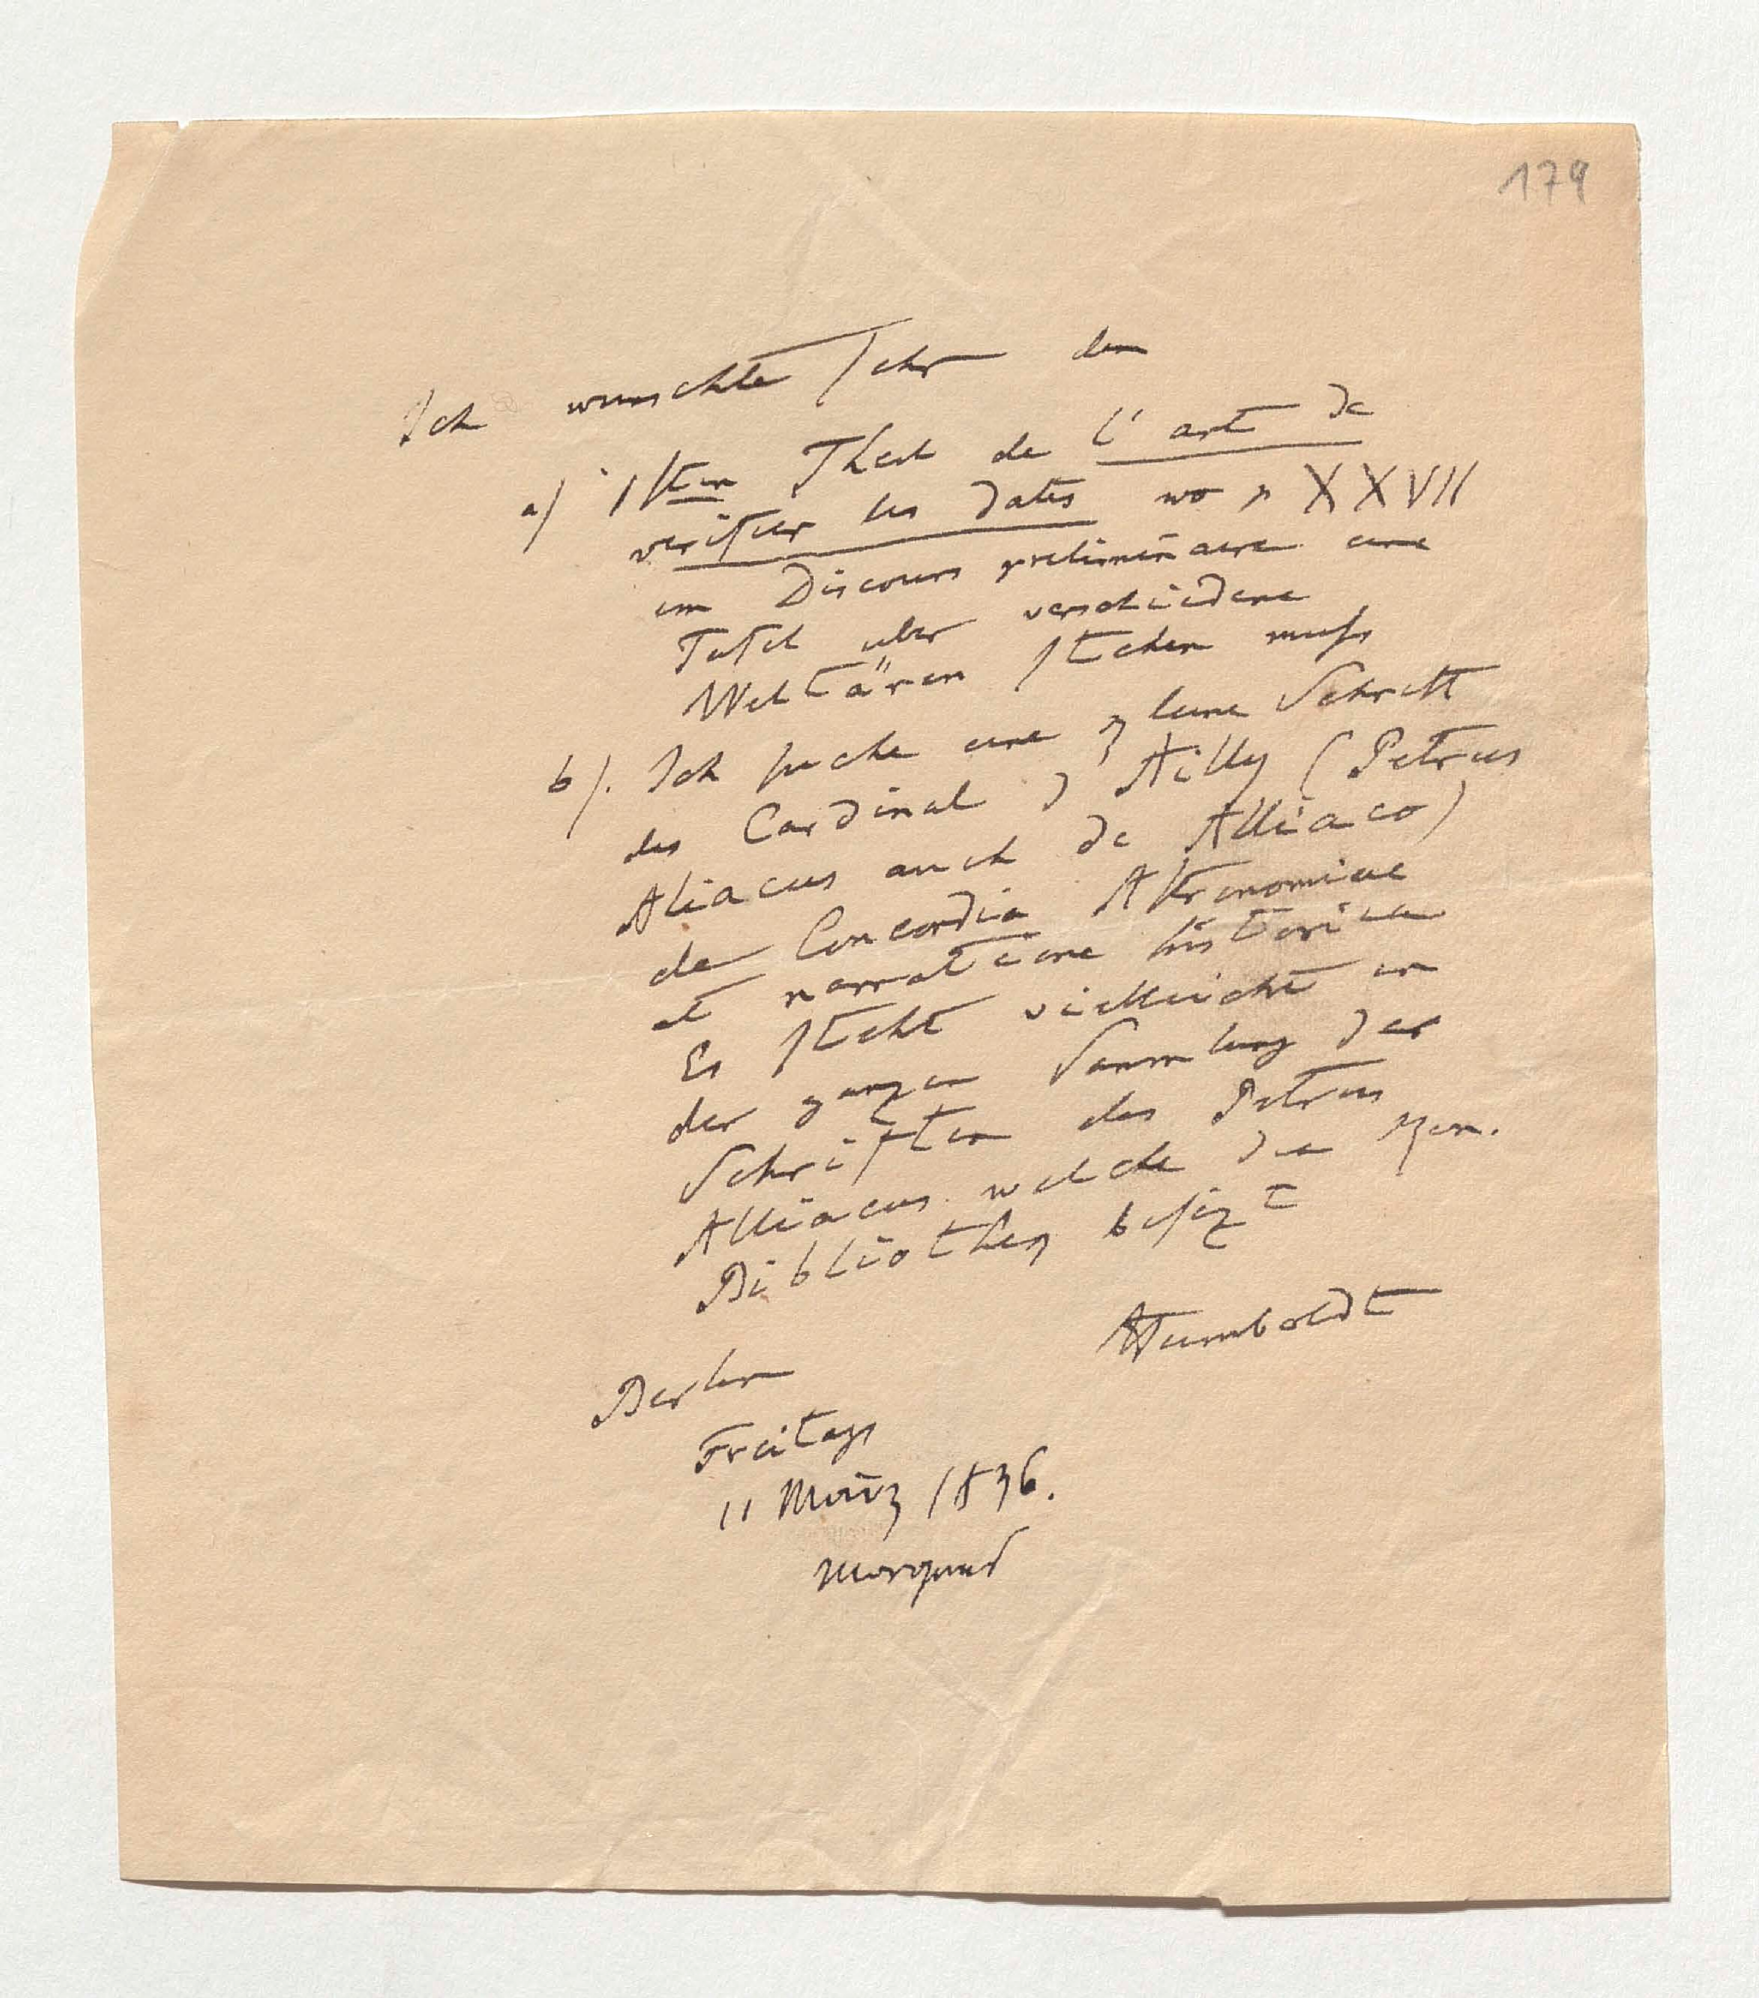 179
Ich wunschte sehr den
a) 1sten Theil de l'art de
verifier les dates wo p XXVII
im Discours preliminaire eine
Tafel uber verschiedene
Weltären stehen muss
b). Ich suche eine kleine Schrift
des Cardinal d'Ailly (Petrus
Aliacus auch de Alliaco)
de Concordia Astronomiae
et narratione historica
Es steht vielleicht in
der ganzen Sammlung der
Schriften des Petrus
Alliacus welche die Kön.
Bibliothek besizt
AHumboldt
Berlin
Freitags
11 März 1836.